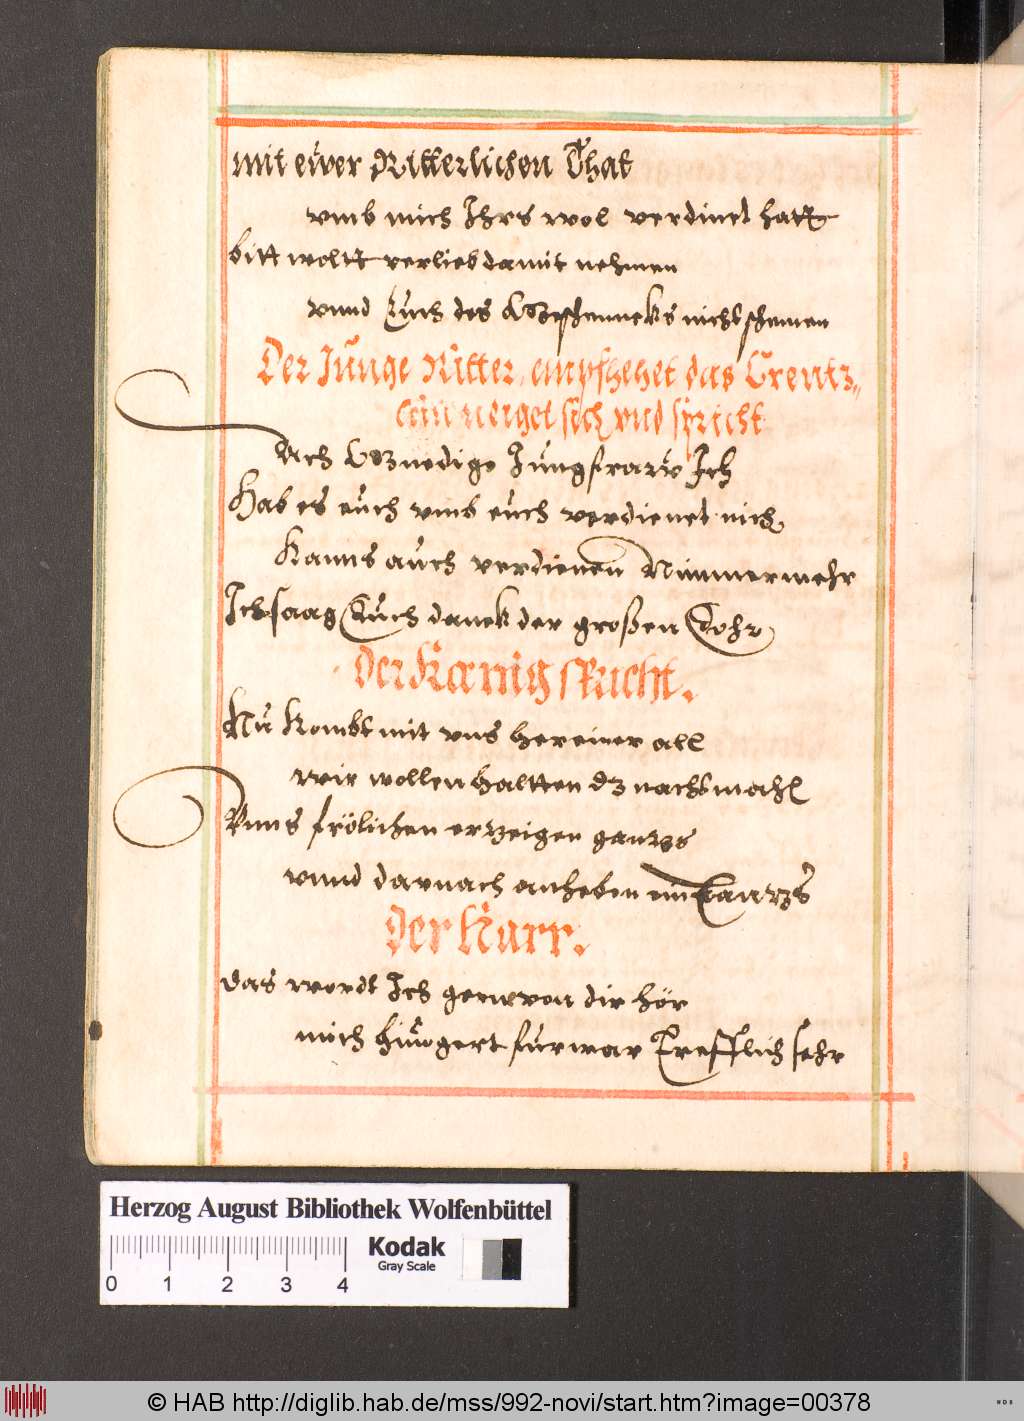 mit ewer Ritterlichen That
vmb mich Ihrs wol verdinet hatt
bitt wollt verlieb damit nehmen
vnnd Euch des Geschenncks nicht schemen
Der Junge Ritter, empfhehet das Crentz„
lein neiget sich vnd spricht
Ach Gnedige Jungfraw Ich
Hab es euch vmb euch verdienet nich
Kanns auch verdienen Nimmermehr
Ich saag Euch danck der großen Eehr
Der Kœnig spricht.
Nu Kombt mit vns hereiner all
wir wollen haltten dz nachtmahl
Vnns frölichen erzeigen gantz
vnnd darnach anheben ein Tantz
Der Narr.
das wordt Ich gern von dir hör
mich hungert furwar Trefflich sehr
Herzog August Bibliothek Wolfenbüttel
Kodak
Gray Scale
0 1 2 3 4
© HAB http://diglib.hab.de/mss/992-novi/start.htm?image=00378